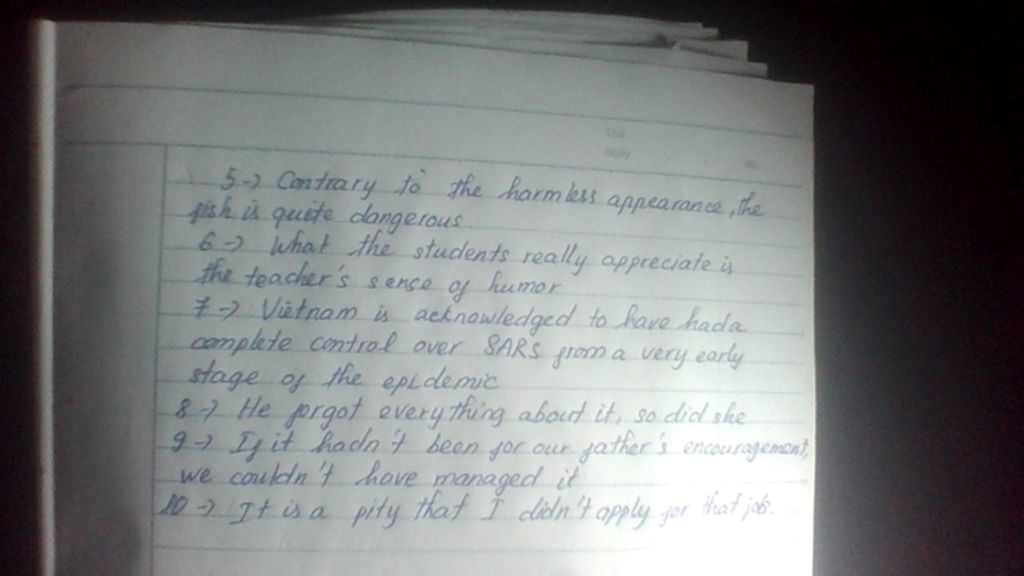 5-> Contrary to the harmless appearance, the
fish is quite dangerous.
6-> What the students really appreciate is
the teacher's sense of humor
7-> Vietnam is acknowledged to have had a
complete control over SARS from a very early
stage of the epidemic
8-> He forgot everything about it, so did she
9-> If it hadn't been for our father's encouragement,
we couldn't have managed it
10-> It is a pity that I didn't apply for that job.